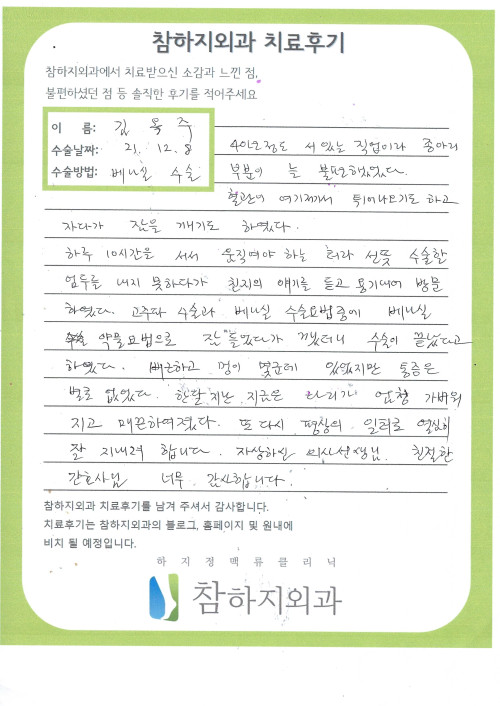 참하지외과 치료후기
참하지외과에서 치료받으신 소감과 느낀 점,
불편하셨던 점 등 솔직한 후기를 적어주세요
이 름: 김 옥 주
수술날짜: 21. 12. 8
수술방법: 베나실 수술
40년정도 서 있는 직업이라 종아리
부분이 늘 불편해었었다.
혈관이 여기저기서 튀어나오기도 하고
자다가 잠을 깨기도 하였다.
하루 10시간은 서서 움직여야 하는 터라 선뜻 수술할
엄두를 내지 못하다가 친지의 얘기를 듣고 용기내어 방문
하였다. 고주파 수술과 베나실 수술요법중에 베나실
약물요법으로 잠들었다가 깼더니 수술이 끝났다고
하였다. 뻐근하고 멍이 몇군데 있었지만 통증은
별로 없었다. 한달 지난 지금은 다리가 엄청 가벼워
지고 매끈하여졌다. 또 다시 평창의 일터로 열심히
잘 지내려 합니다. 자상하신 의사선생님. 친절한
간호사님 너무 감사합니다.
참하지외과 치료후기를 남겨 주셔서 감사합니다.
치료후기는 참하지외과의 블로그, 홈페이지 및 원내에
비치 될 예정입니다.
하지정맥류클리닉
참하지외과